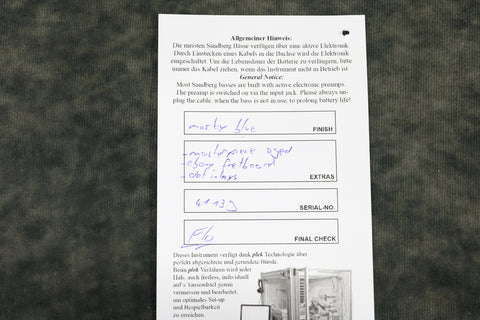 Allgemeiner Hinweis:
Die meisten Sandberg Bässe verfügen über eine aktive Elektronik.
Durch Einstecken eines Kabels in die Buchse wird die Elektronik
eingeschaltet. Um die Lebensdauer der Batterie zu verlängern, bitte
immer das Kabel ziehen, wenn das Instrument nicht in Betrieb ist.
General Notice:
Most Sandberg basses are built with active electronic preamps.
The preamp is switched on via the input jack. Please always un-
plug the cable, when the bass is not in use, to prolong battery life!
blue
FINISH
- masterpiece aged
- ebony fretboard
- dot inlays
EXTRAS
41139
SERIAL-NO.
Flo
FINAL CHECK
Dieses Instrument verfügt dank plek Technologie über
perfekt abgerichtete und gerundete Bünde.
Beim plek Verfahren wird jeder
Hals, auch fretless, individuell
auf's tausendstel genau
vermessen und bearbeitet,
um optimales Set-up
und Bespielbarkeit
zu erreichen.